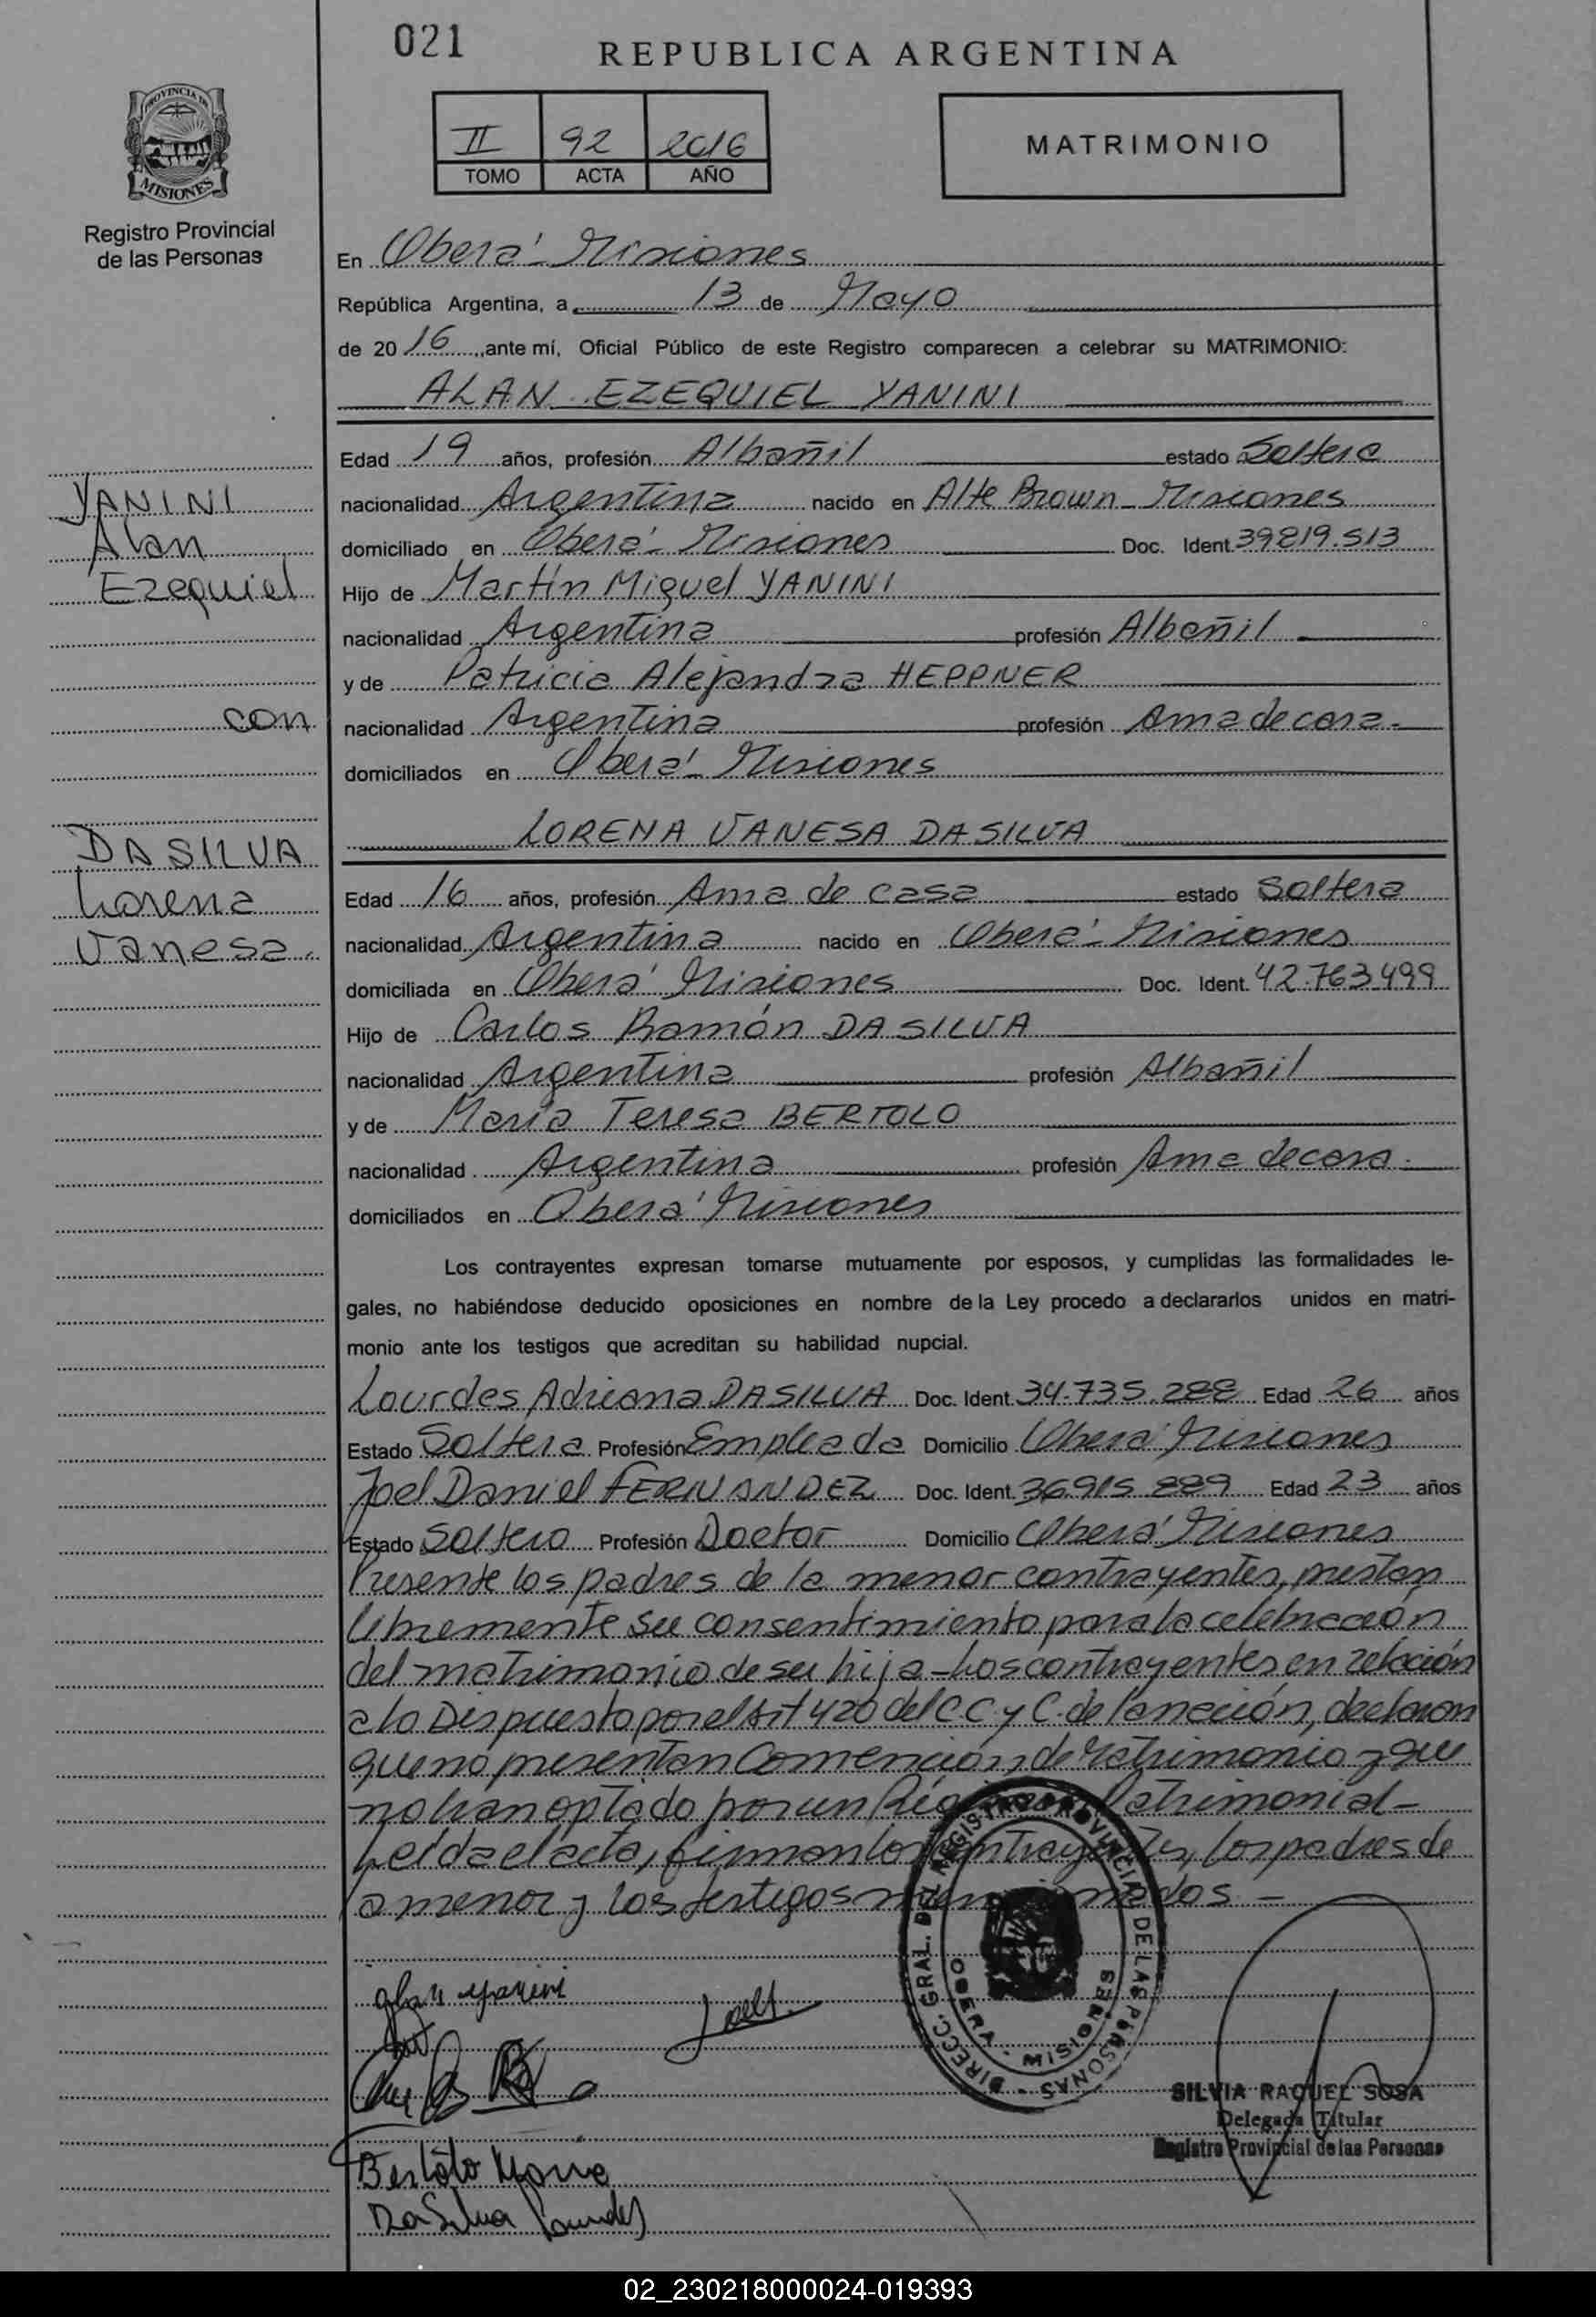 021
REPUBLICA ARGENTINA
PROVINCIA DE
MISIONES
Registro Provincial
de las Personas
II 92 2016
TOMO ACTA AÑO
MATRIMONIO
En Oberá - Misiones
República Argentina, a 13 de Mayo
de 2016, ante mí, Oficial Público de este Registro comparecen a celebrar su MATRIMONIO:
ALAN EZEQUIEL YANINI
YANINI
Alan
Ezequiel
con
DA SILVA
Lorena
Vanesa.
Edad 19 años, profesión Albañil estado Soltero
nacionalidad Argentina nacido en Alte Brown - Misiones
domiciliado en Oberá - Misiones Doc. Ident. 39819.513
Hijo de Martín Miguel YANINI
nacionalidad Argentina profesión Albañil
y de Patricia Alejandra HEPPNER
nacionalidad Argentina profesión Ama de casa.
domiciliados en Oberá - Misiones
LORENA VANESA DA SILVA
Edad 16 años, profesión Ama de casa estado Soltera
nacionalidad Argentina nacido en Oberá - Misiones
domiciliada en Oberá Misiones Doc. Ident. 42.763.499
Hijo de Carlos Ramón DA SILVA
nacionalidad Argentina profesión Albañil
y de María Teresa BERTOLO
nacionalidad Argentina profesión Ama de casa.
domiciliados en Oberá Misiones
Los contrayentes expresan tomarse mutuamente por esposos, y cumplidas las formalidades le-
gales, no habiéndose deducido oposiciones en nombre de la Ley procedo a declararlos unidos en matri-
monio ante los testigos que acreditan su habilidad nupcial.
Lourdes Adriana DA SILVA Doc. Ident. 34.735.288 Edad 26 años
Estado Soltera Profesión Empleada Domicilio Oberá Misiones
Joel Daniel FERNANDEZ Doc. Ident. 36.915.889 Edad 23 años
Estado Soltero Profesión Doctor Domicilio Oberá Misiones
Presente los padres de la menor contrayentes, prestan
libremente su consentimiento para la celebración
del matrimonio de su hija - Los contrayentes en relación
a lo Dispuesto por el Art 420 del C C y C. de la nación, declaran
que no presentan Convención de Matrimonio y que
no han optado por un Patrimonial -
Leída el acta, firman los contrayentes, los padres de
la menor y los testigos mencionados -
DIRECC. GRAL. DEL REGISTRO PROVINCIAL DE LAS PERSONAS
OBERA - MISIONES
Alan Yanini
Joel
Bertolo Maria
Da Silva Lourdes
SILVIA RAQUEL SOSA
Delegada Titular
Registro Provincial de las Personas
02_230218000024-019393